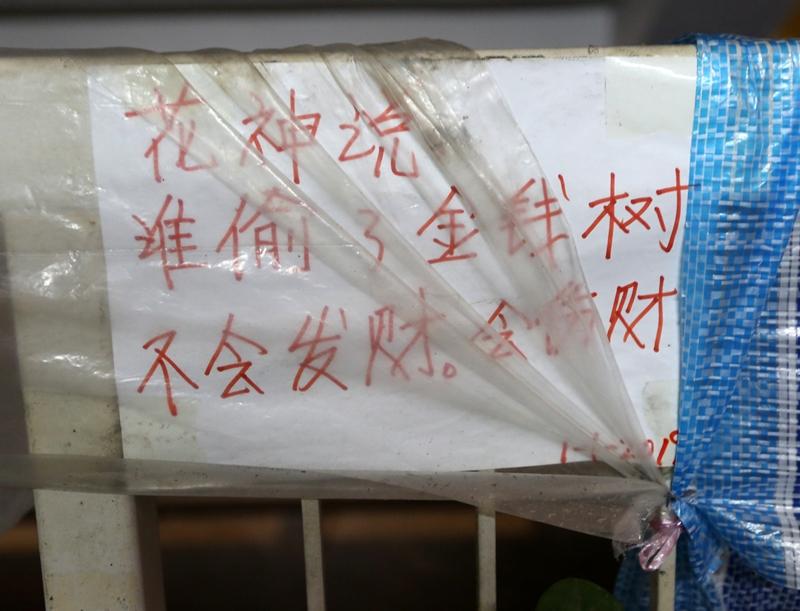 花神说
谁偷了金钱树
不会发财。会破财